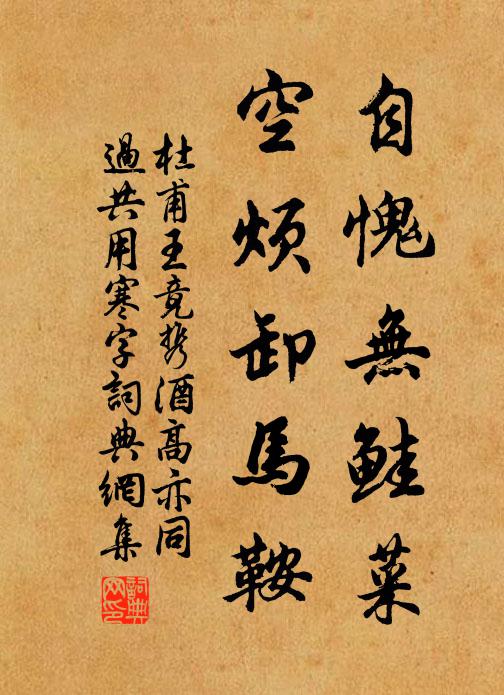 自愧無鮭菜
空煩卸馬鞍
杜甫王竟攜酒高亦同
過共用寒字詞典網集
詞典
网印